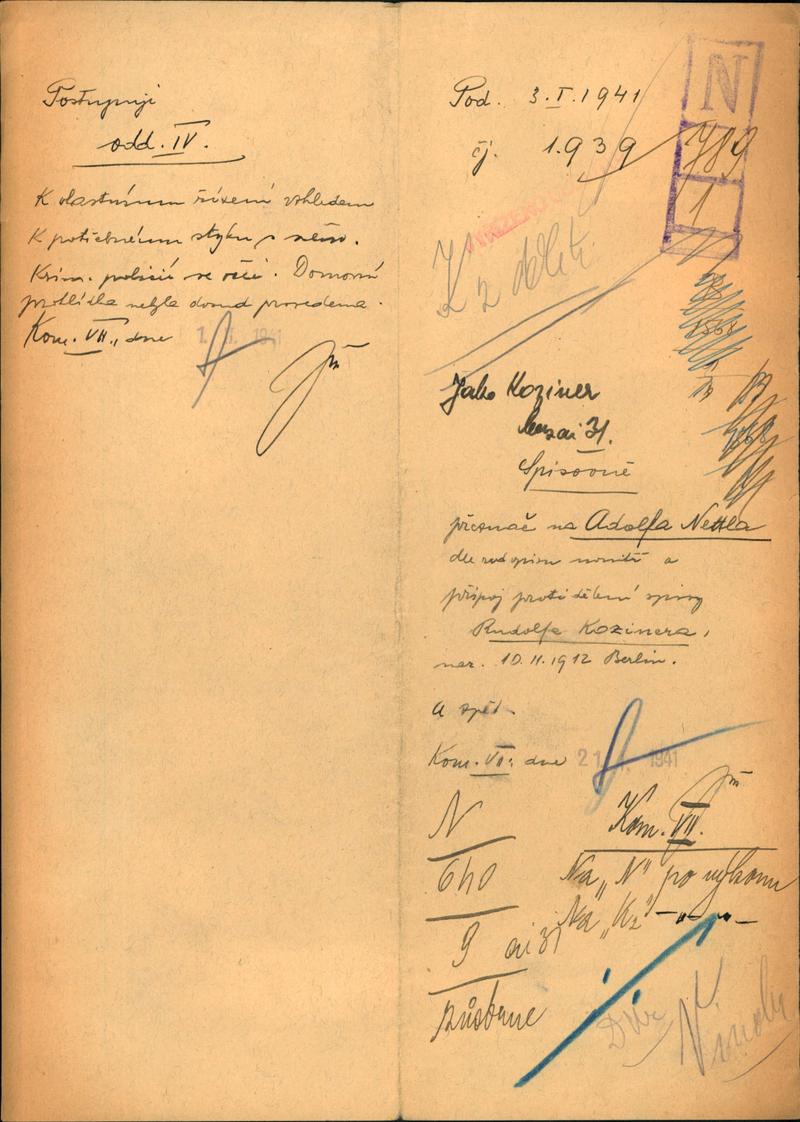 Postupuji
odd. IV.
K vlastnímu řízení vzhledem
K potřebnému styku s něm.
Krim. policií ve věci. Domovní
prohlídka nebyla dosud provedena.
Kom. VII., dne 1. 1941
Pod. 3.I.1941
čj. 1939
N
789
1
K 2
1568
Jako Koziner
31.
Spisovně
přeznač na Adolfa Nettla
dle rodopisu uvnitř a
připoj protidětení spisy
Rudolfa Kozinera,
nar. 10.II.1912 Berlin.
A zpět.
Kom. VII., dne 21. 1941
N
640
9
Kom. VII.
Na „N" po výkonu
Na „Kz" — „ — „ —